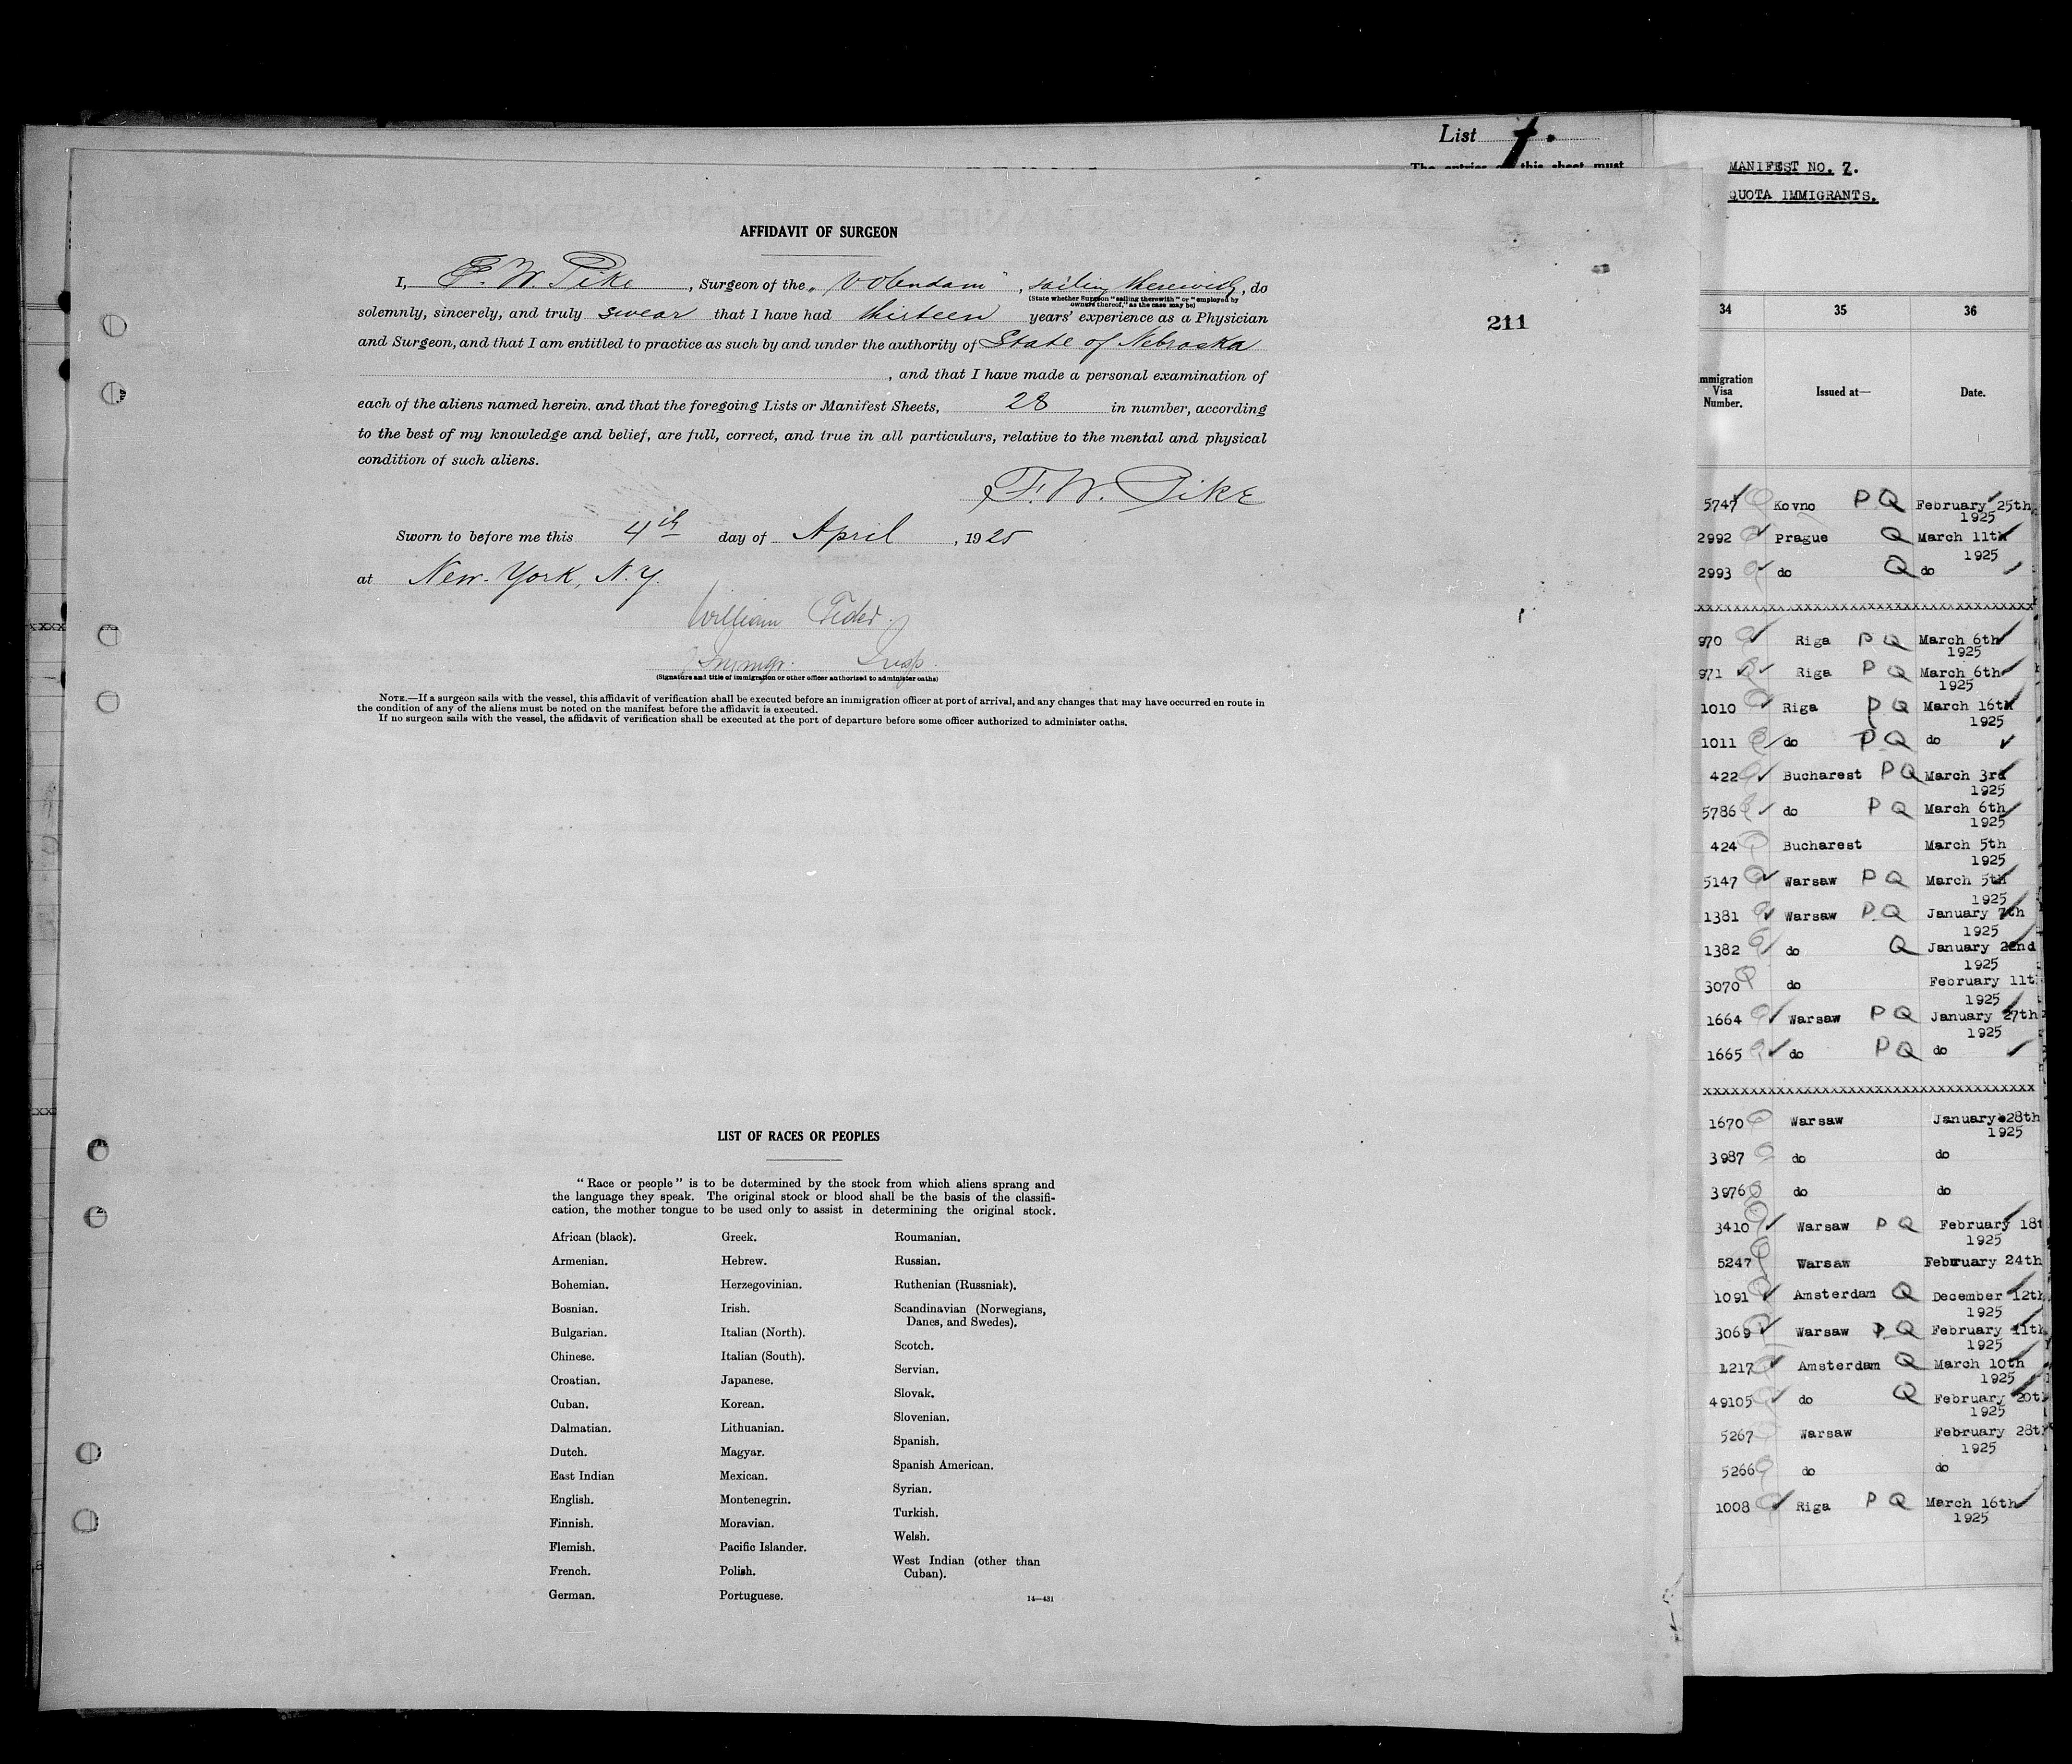 List 7.
AFFIDAVIT OF SURGEON
I, F. W. Pike, Surgeon of the "Volendam", sailing therewith, do
(State whether Surgeon "sailing therewith" or "employed by
owners thereof," as the case may be)
solemnly, sincerely, and truly swear that I have had thirteen years' experience as a Physician
and Surgeon, and that I am entitled to practice as such by and under the authority of State of Nebraska
, and that I have made a personal examination of
each of the aliens named herein. and that the foregoing Lists or Manifest Sheets, 28 in number, according
to the best of my knowledge and belief, are full, correct, and true in all particulars, relative to the mental and physical
condition of such aliens.
F. W. Pike
Sworn to before me this 4th day of April, 1925
at New-York, N.Y.
William
Immgr. Insp.
(Signature and title of immigration or other officer authorized to administer oaths)
NOTE.—If a surgeon sails with the vessel, this affidavit of verification shall be executed before an immigration officer at port of arrival, and any changes that may have occurred en route in
the condition of any of the aliens must be noted on the manifest before the affidavit is executed.
If no surgeon sails with the vessel, the affidavit of verification shall be executed at the port of departure before some officer authorized to administer oaths.
211
LIST OF RACES OR PEOPLES
"Race or people" is to be determined by the stock from which aliens sprang and
the language they speak. The original stock or blood shall be the basis of the classifi-
cation, the mother tongue to be used only to assist in determining the original stock.
African (black).
Armenian.
Bohemian.
Bosnian.
Bulgarian.
Chinese.
Croatian.
Cuban.
Dalmatian.
Dutch.
East Indian
English.
Finnish.
Flemish.
French.
German.
Greek.
Hebrew.
Herzegovinian.
Irish.
Italian (North).
Italian (South).
Japanese.
Korean.
Lithuanian.
Magyar.
Mexican.
Montenegrin.
Moravian.
Pacific Islander.
Polish.
Portuguese.
Roumanian.
Russian.
Ruthenian (Russniak).
Scandinavian (Norwegians,
Danes, and Swedes).
Scotch.
Servian.
Slovak.
Slovenian.
Spanish.
Spanish American.
Syrian.
Turkish.
Welsh.
West Indian (other than
Cuban).
14—431
MANIFEST NO. 7.
QUOTA IMMIGRANTS.
34 35 36
mmigration
Visa
Number.
Issued at—
Date.
5747 Kovno P Q February 25th
1925
2992 Prague Q March 11th
1925
2993 do Q do
xxxxxxxxxxxxxxxxxxxxxxxxxxxxxxxxxxxxxx
970 Riga P Q March 6th
1925
971 Riga P Q March 6th
1925
1010 Riga P Q March 16th
1925
1011 do P Q do
422 Bucharest P Q March 3rd
1925
5786 do P Q March 6th
1925
424 Bucharest March 5th
1925
5147 Warsaw P Q March 5th
1925
1381 Warsaw P Q January 7th
1925
1382 do Q January 22nd
1925
3070 do February 11t
1925
1664 Warsaw P Q January 27th
1925
1665 do P Q do
xxxxxxxxxxxxxxxxxxxxxxxxxxxxxxxxxxxxxx
1670 Warsaw January 28th
1925
3987 do do
3976 do do
3410 Warsaw P Q February 18t
1925
5247 Warsaw February 24th
1091 Amsterdam Q December 12th
1925
3069 Warsaw P Q February 11th
1925
1217 Amsterdam Q March 10th
1925
49105 do Q February 20th
1925
5267 Warsaw February 28th
1925
5266 do do
1008 Riga P Q March 16th
1925